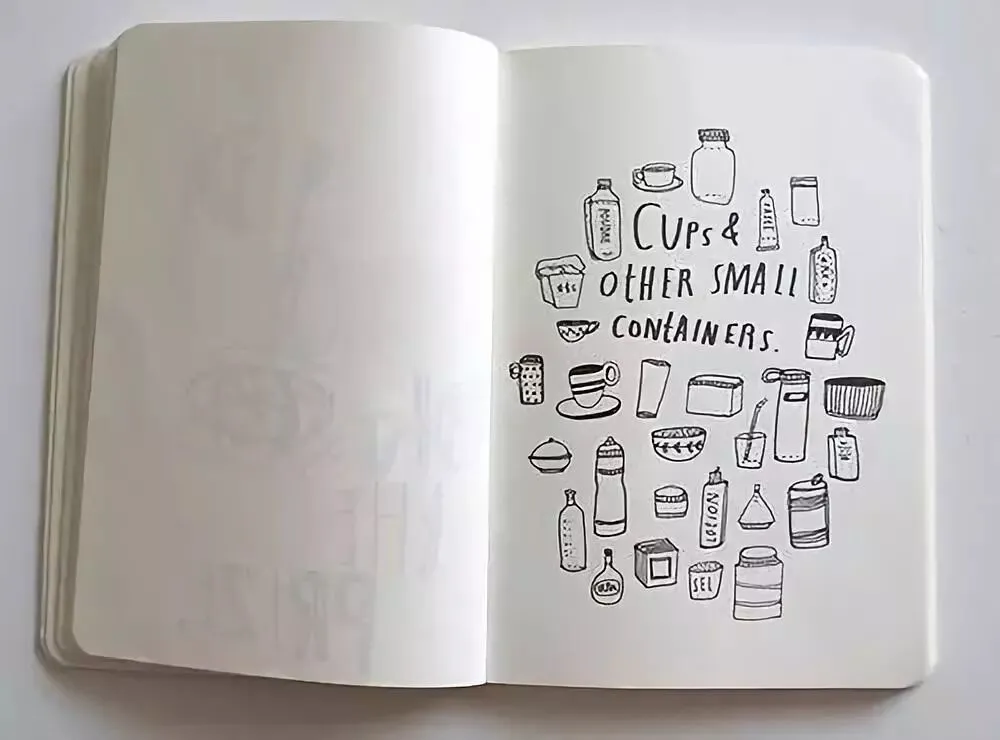 Cups &
OtHER SMALL
CONtAINERS.
LOtION
SEL